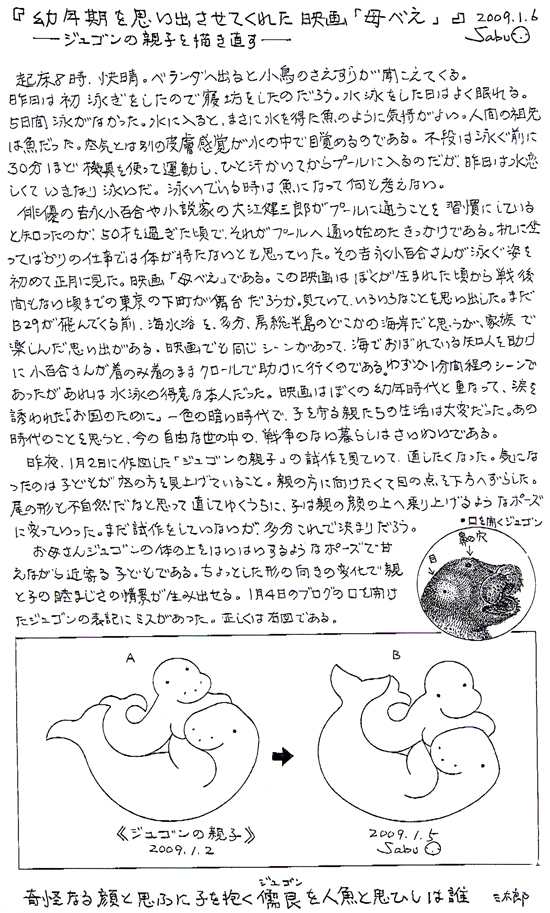 『幼年期を思い出させてくれた映画「母べえ」』 2009.1.6
―ジュゴンの親子を描き直す― Sabu
起床8時、快晴。ベランダへ出ると小鳥のさえずりが聞こえてくる。
昨日は初泳ぎをしたので寝坊をしたのだろう。水泳をした日はよく眠れる。
5日間泳がなかった。水に入ると、まさに水を得た魚のように気持がよい。人間の祖先
は魚だった。空気とは別の皮膚感覚が水の中で目覚めるのである。不段は泳ぐ前に
30分ほど機具を使って運動し、ひと汗かいてからプールに入るのだが、昨日は水恋
しくていきなり泳いだ。泳いでいる時は魚になって何も考えない。
俳優の吉永小百合や小説家の大江健三郎がプールに通うことを習慣にしている
と知ったのが、50才を過ぎた頃で、それがプールへ通い始めたきっかけである。机に坐
ってばかりの仕事では体が持たないとも思っていた。その吉永小百合さんが泳ぐ姿を
初めて正月に見た。映画「母べえ」である。この映画はぼくが生まれた頃から戦後
間もない頃までの東京の下町が舞台だろうか。見ていて、いろいろなことを思い出した。まだ
B29が飛んでくる前、海水浴を、多分、房総半島のどこかの海岸だと思うが、家族で
楽しんだ思い出がある。映画でも同じシーンがあって、海でおぼれている知人を助け
に小百合さんが着のみ着のままクロールで助けに行くのである。わずか1分間程のシーンで
あったがあれは水泳の得意な本人だった。映画はぼくの幼年時代と重なって、涙を
誘われた。「お国のために」一色の暗い時代で、子を守る親たちの生活は大変だった。あの
時代のことを思うと、今の自由な世の中の、戦争のない暮らしはさいわいである。
昨夜、1月2日に作図した「ジュゴンの親子」の試作を見ていて、直したくなった。気にな
ったのは子どもが空の方を見上げていること。親の方に向けたくて目の点を下方へずらした。
尾の形も不自然だなと思って直してゆくうちに、子は親の顔の上へ乗り上げるようなポーズ
に変っていった。まだ試作をしていないが、多分これで決まりだろう。
お母さんジュゴンの体の上をはいはいするようなポーズで甘
えながら近寄る子どもである。ちょっとした形の向きの変化で親
と子の睦まじさの情景が生み出せる。1月4日のブログの口を開け
たジュゴンの表記にミスがあった。正しくは右図である。
•口を開くジュゴン
鼻の穴
目
A
B
《ジュゴンの親子》
2009.1.2
2009.1.5
Sabu
ジュゴン
奇怪なる顔と思ふに子を抱く儒艮を人魚と思ひしは誰 三太郎